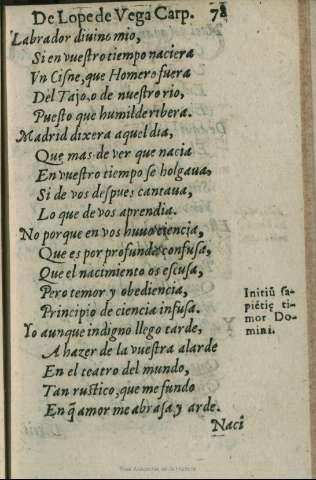 De Lope de Vega Carp. 78
Labrador diuino mio,
Si en vuestro tiempo naciera
Vn Cisne, que Homero fuera
Del Tajo, o de nuestro rio,
Puesto que humilde ribera.
Madrid dixera aquel dia,
Que mas de ver que nacia
En vuestro tiempo se holgaua,
Si de vos despues cantaua,
Lo que de vos aprendia.
No porque en vos huuo ciencia,
Que es por profunda confusa,
Que el nacimiento os escusa,
Pero temor y obediencia,
Principio de ciencia infusa.
Initiū sa-
piētię ti-
mor Do-
mini.
Yo aunque indigno llego tarde,
A hazer de la vuestra alarde
En el teatro del mundo,
Tan rustico, que me fundo
En q̃ amor me abrasa, y arde.
Naci
Real Academia de la Historia